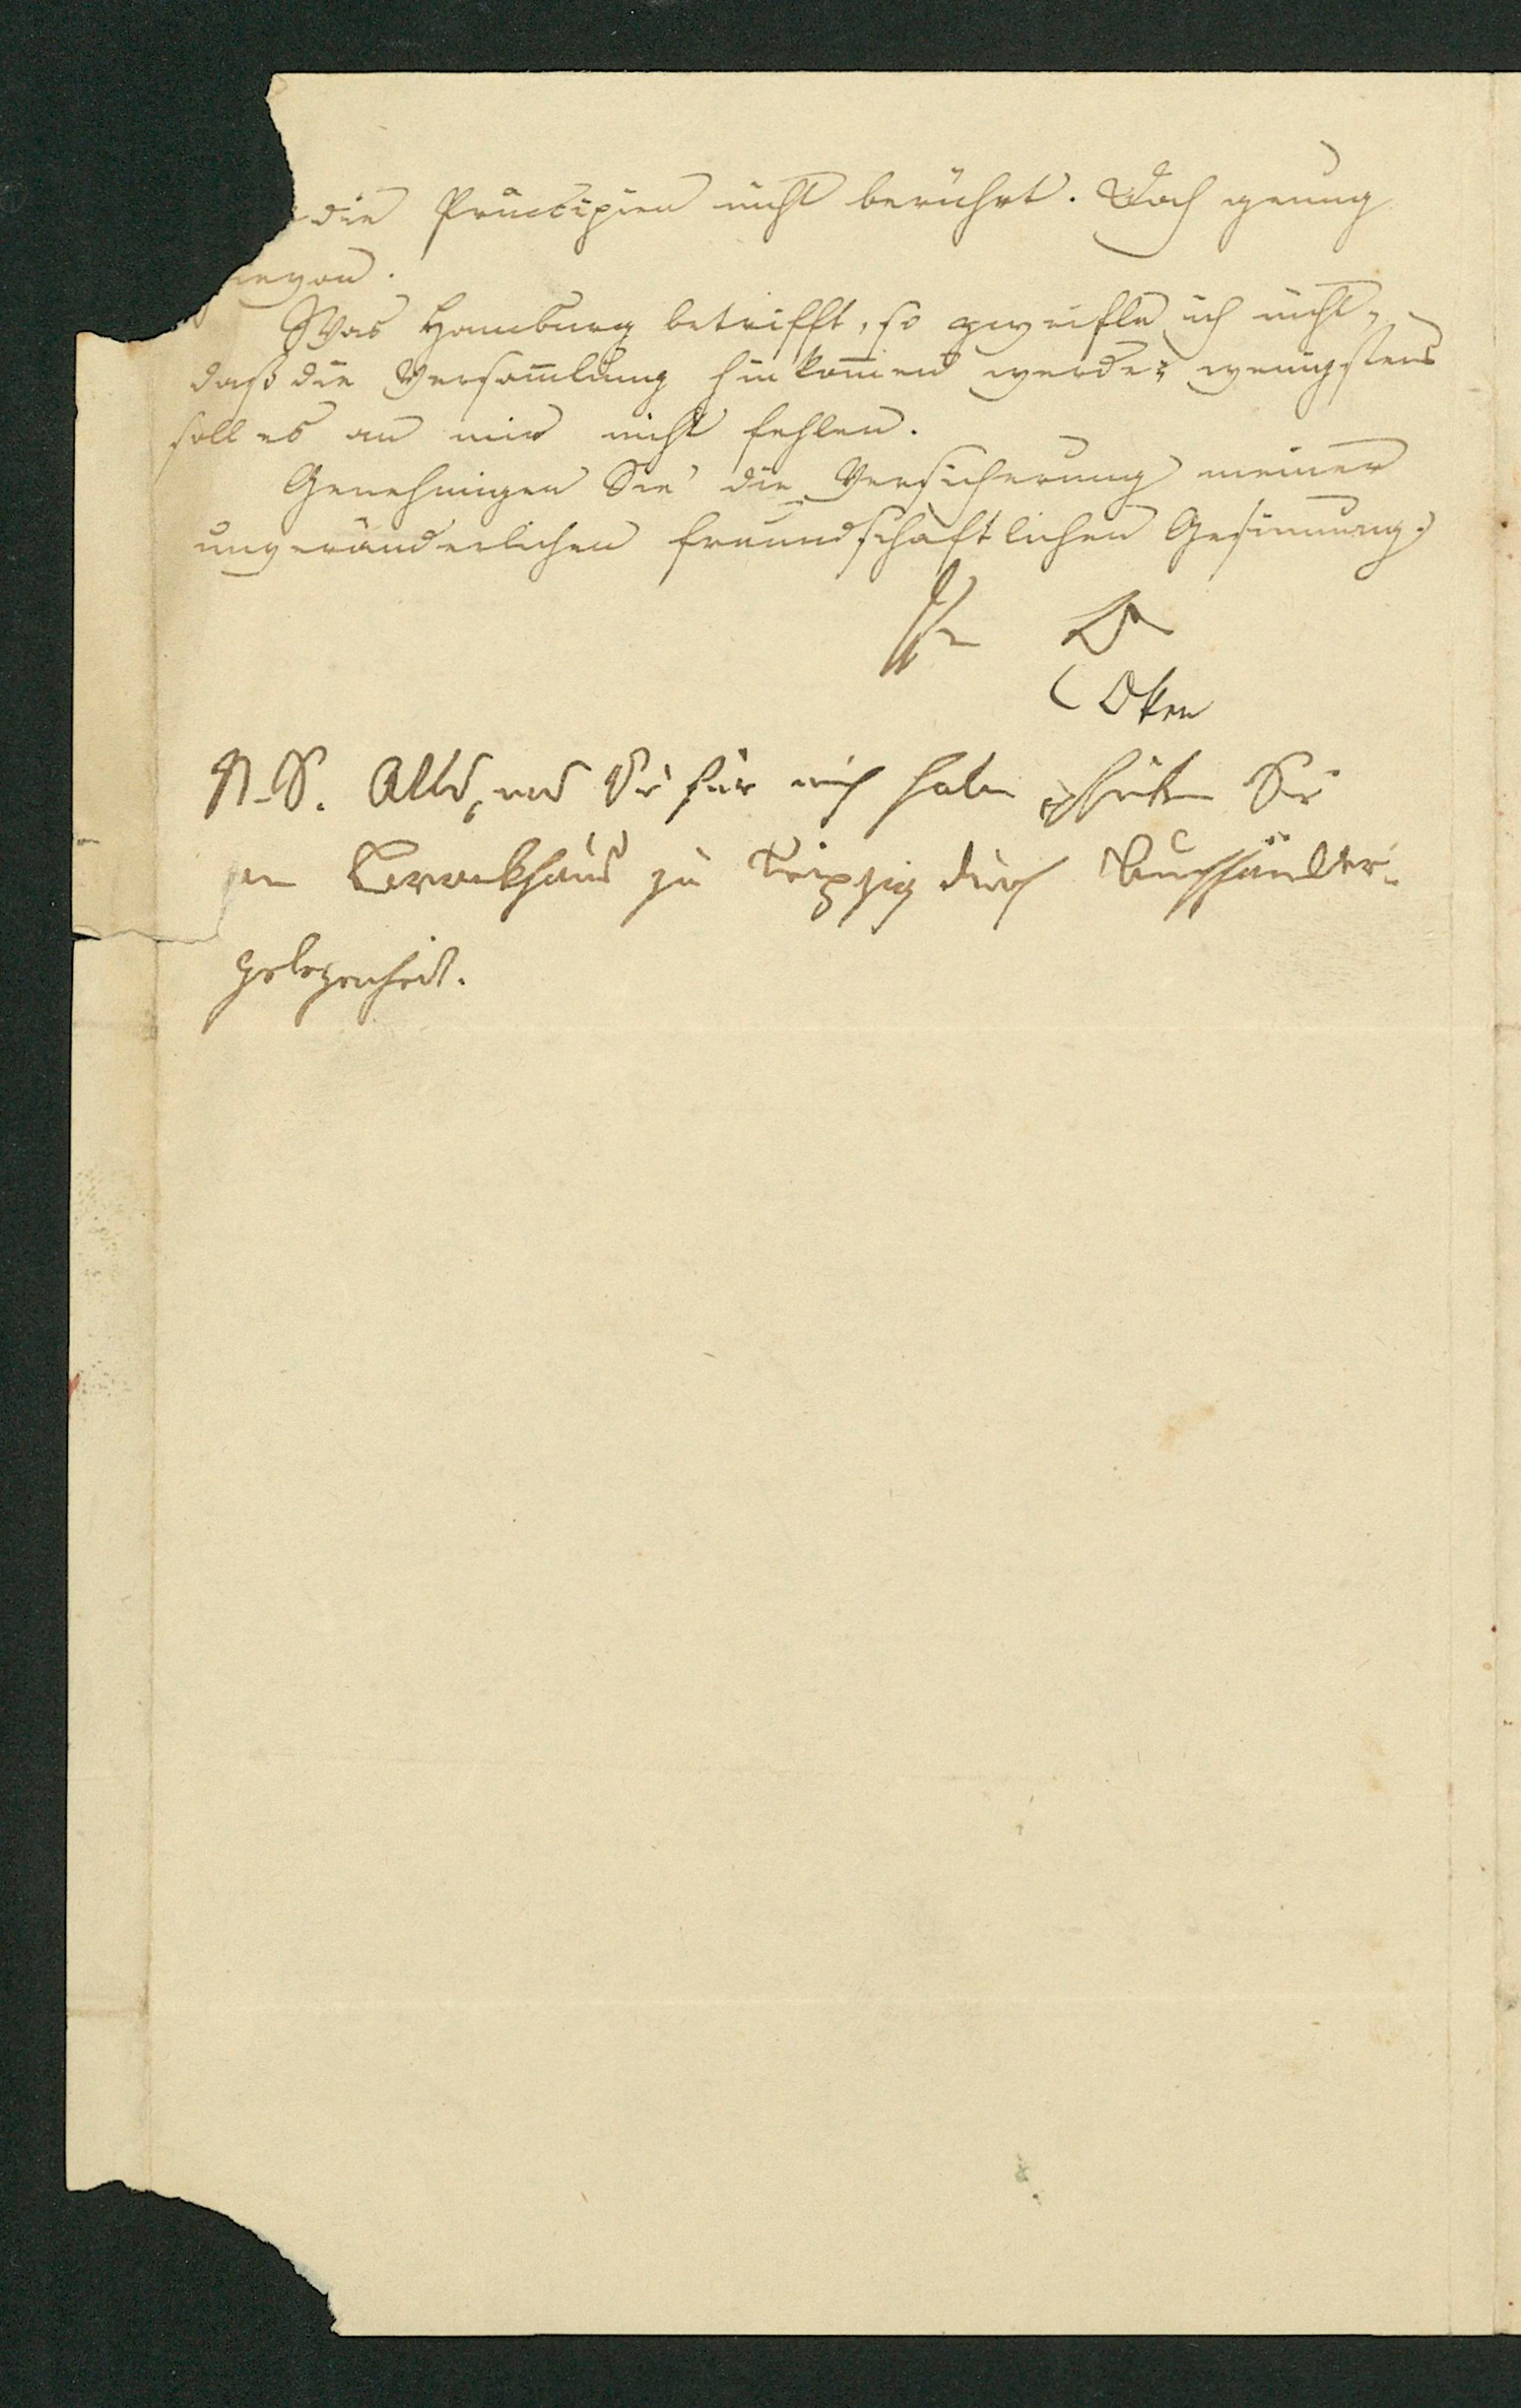 die Principien nicht berührt. Doch genug
hievon.
Was Hamburg betrifft, so zweifle ich nicht,
daß die Versam̅lung hinkom̅en werde; wenigstens
soll es an mir nicht fehlen.
Genehmigen Sie die Versicherung meiner
unveränderlichen freundschaftlichen Gesinnung.
Ihr
Oken
N.S. Alles, was Sie für mich haben, schicken Sie
an Brockhaus zu Leipzig durch Buchhändler-
gelegenheit.